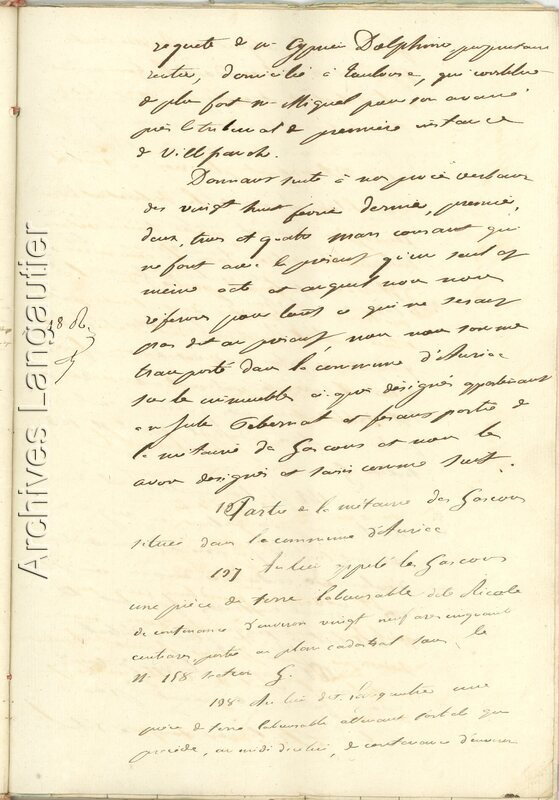 requete de Mr Cyprien Dolphine, proprietaire
rentier, domicilié à Toulouse, qui constitue
de plus fort Mr Miquel pour son avoué
près le tribunal de première instance
de Villefranche.
Donnant suite à nos procès verbaux
des vingt huit fevrier dernier, premier,
deux, trois et quatre mars courant qui
ne font avec le présent qu'un seul et
même acte et auquel nous nous
référons pour tout ce qui ne serait
pas dit au présent nous nous sommes
transporté dans la commune d'Auriac
sur les immeubles ci après désignés appartenant
au Sr Jule Gebernat et fesant partie de
la métairie de Gascous et nous les
avons désignés et saisis comme suit.
Partie de la métairie des Gascous
située dans la commune d'Auriac
197 Au lieu appelé les Gascous
une pièce de terre labourable dite
de contenance d'environ vingt neuf ares cinquante
centiares, portée au plan cadastral sous le
N° 158 section G.
198 Au lieu dit Langautier une
pièce de terre labourable attenant
précède, au midi de celui, de contenance d'environ
Archives Langautier